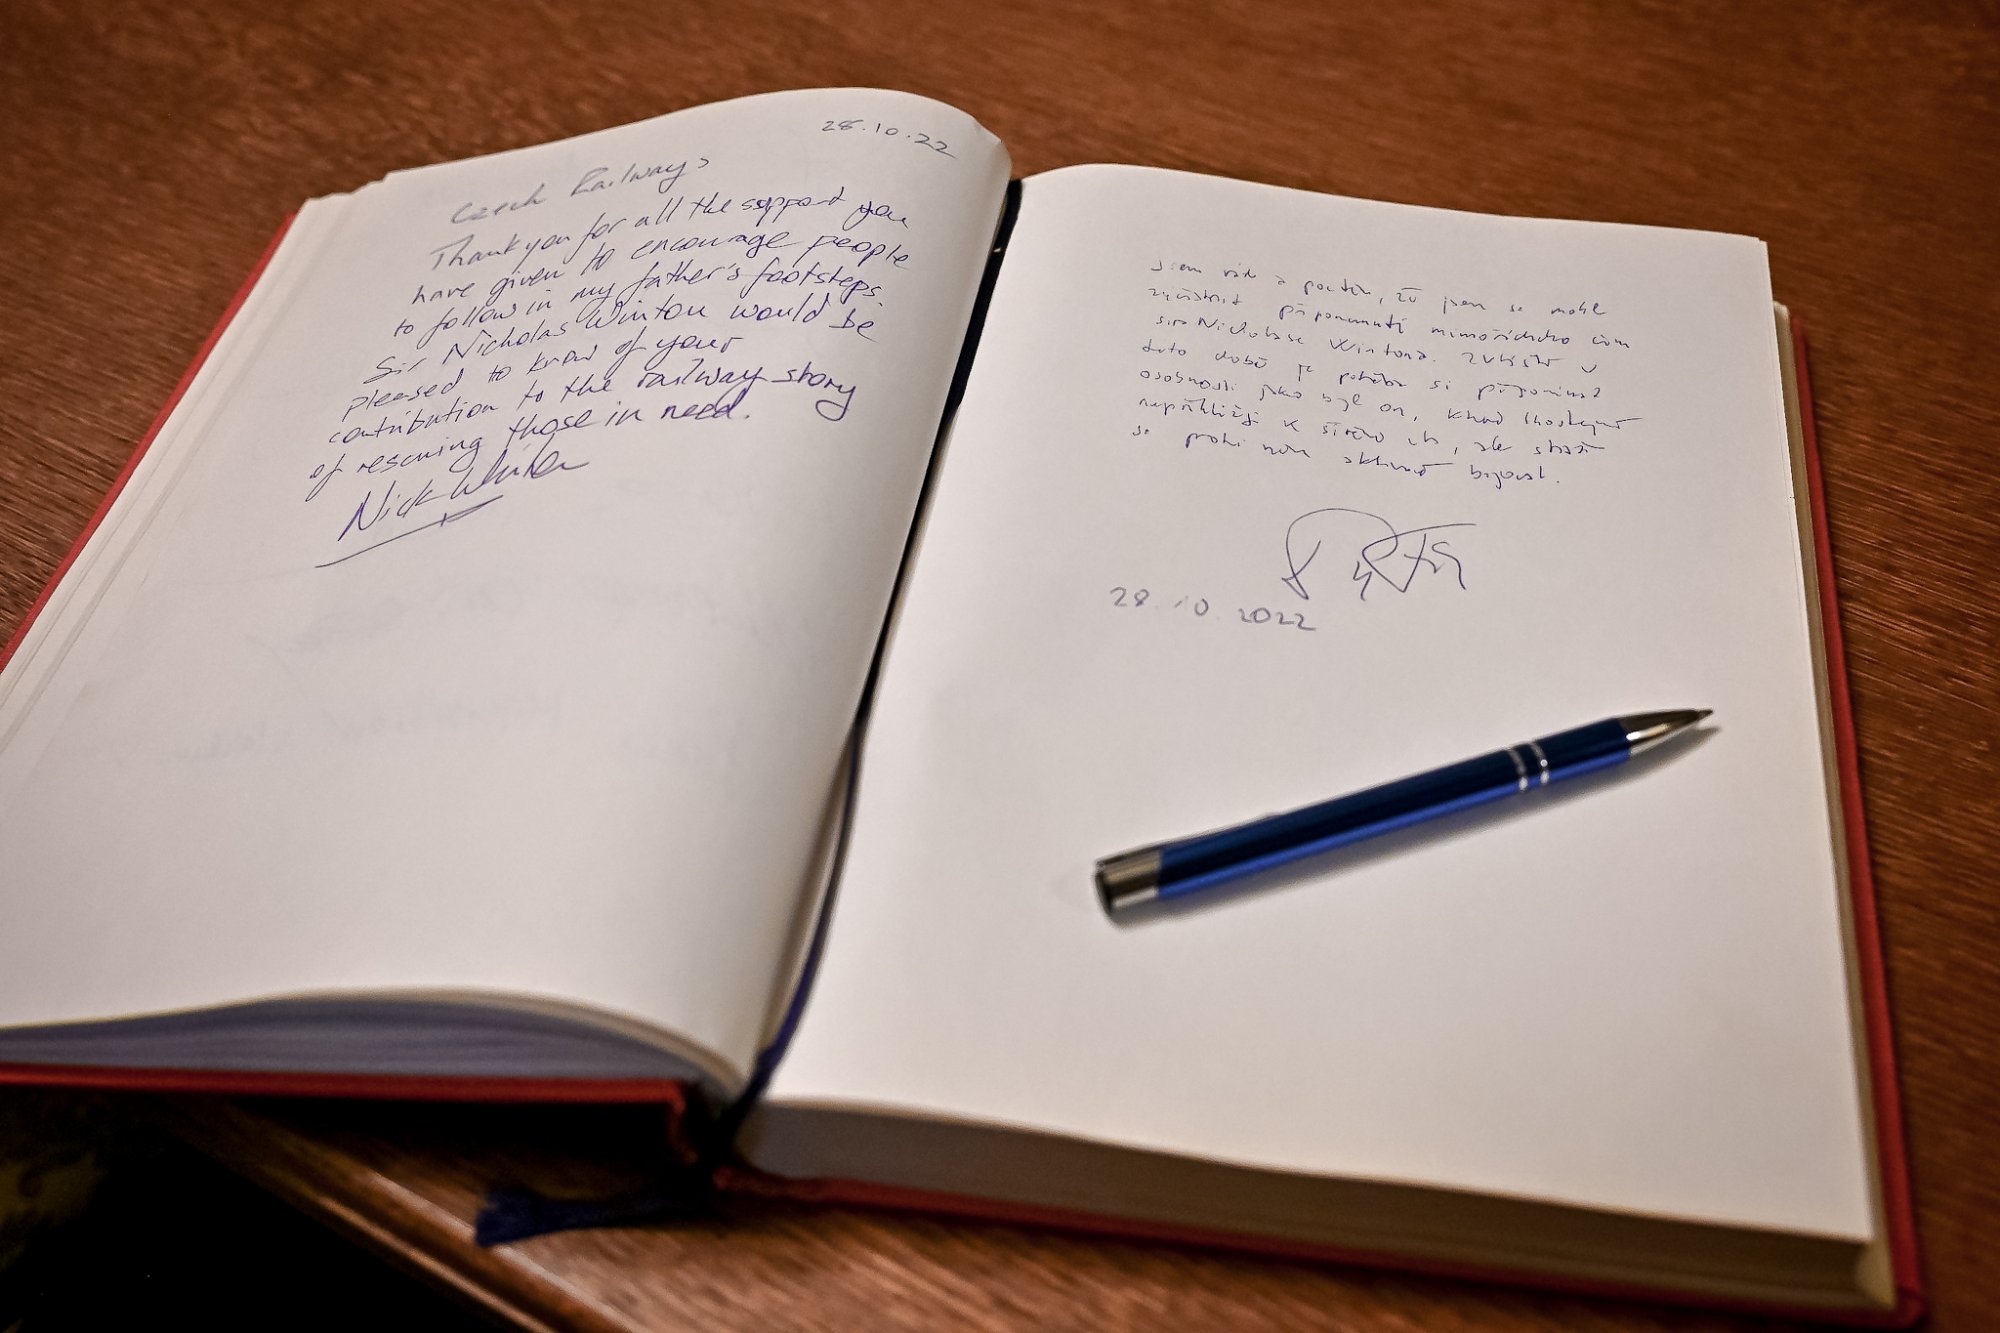 28.10.22
Czech Railways
Thank you for all the support you
have given to encourage people
to follow in my father's footsteps.
Sir Nicholas Winton would be
pleased to know of your
contribution to the railway story
of rescuing those in need.
Nick Winton
Jsem rád a poctěn, že jsem se mohl
zúčastnit připomenutí mimořádného činu
sira Nicholase Wintona. Zvláště v
této době je potřeba si připomínat
osobnosti jako byl on, který lhostejně
nepřihlížejí k šíření zla, ale snaží
se proti němu aktivně bojovat.
28.10.2022